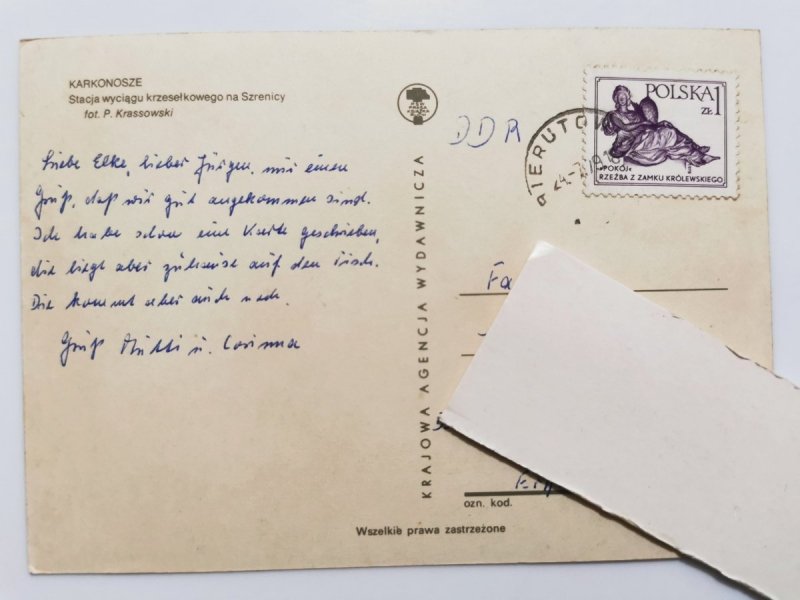 KARKONOSZE
Stacja wyciągu krzesełkowego na Szrenicy
fot. P. Krassowski
Liebe Elke, lieber Jürgen, nur einen
Gruß, daß wir gut angekommen sind.
Ich habe schon eine Karte geschrieben,
die liegt aber zuhause auf den Tisch.
Die kommt aber auch noch.
Gruß Mutti u. Corinna
KRAJOWA AGENCJA WYDAWNICZA
DDR
BIERUTÓW
POLSKA 1
ZŁ
»POKÓJ«
RZEŹBA Z ZAMKU KRÓLEWSKIEGO
Fa
ozn. kod.
Wszelkie prawa zastrzeżone